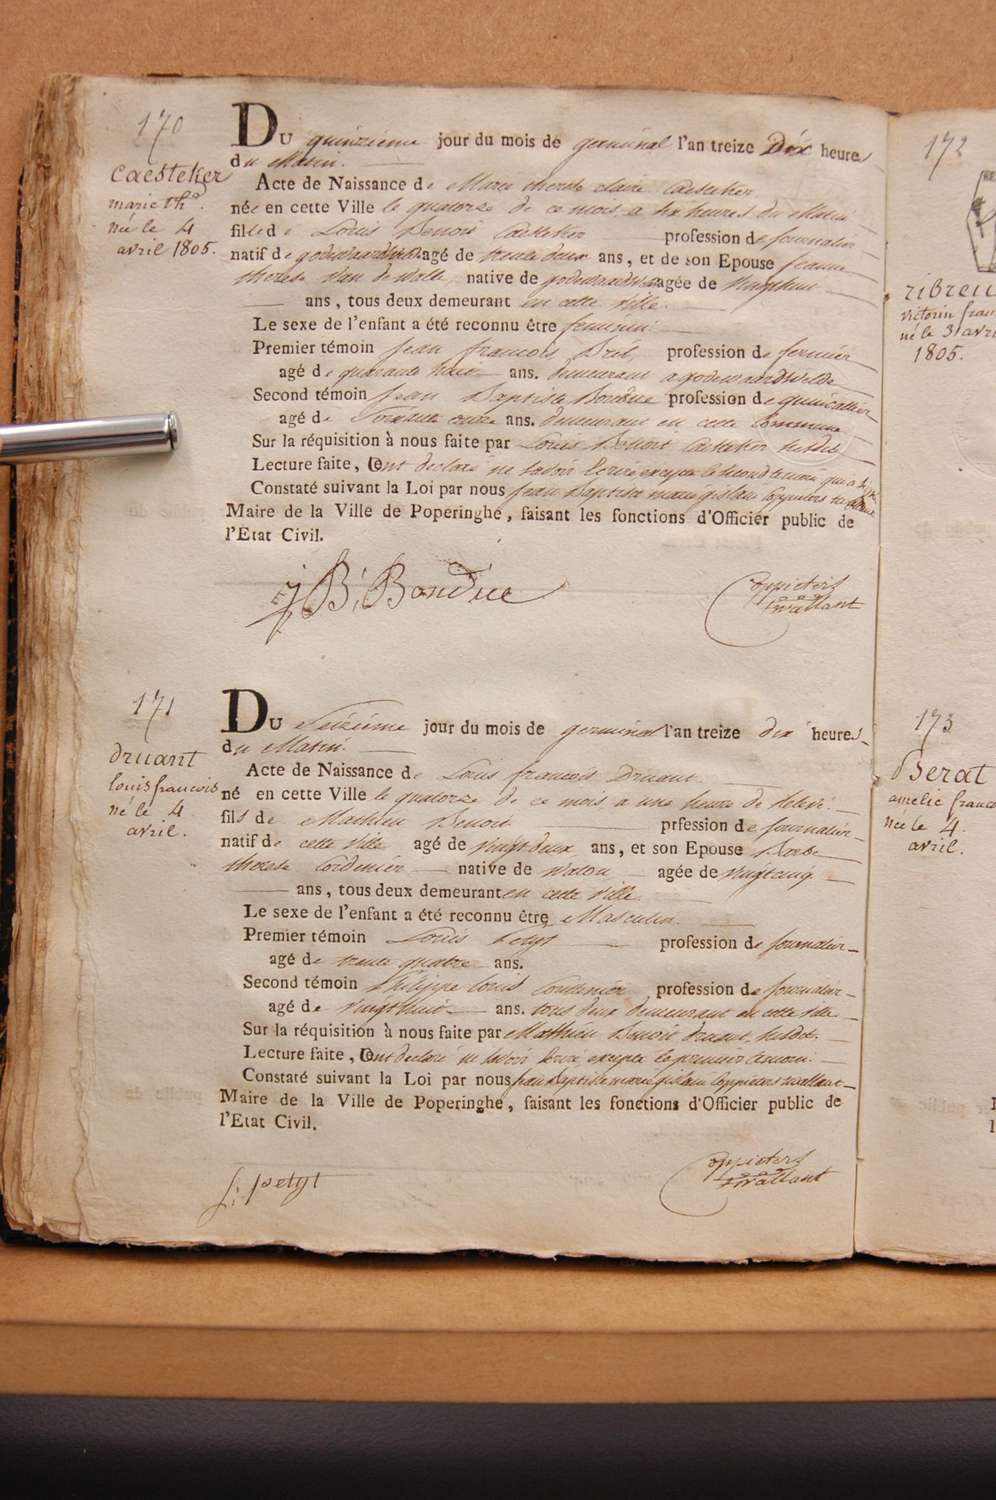 170
caesteker
marie th.
née le 4
avril 1805.
DU quinzieme jour du mois de germinal l'an treize Dix heures
du Matin.
Acte de Naissance de Marie therese claire Caesteker
née en cette Ville le quatorze de ce mois a six heures du Matin
fille de Louis Benoit Caesteker profession de journalier
natif de godewaersvelde agé de trente deux ans, et de son Epouse jeanne
therese Van de Walle native de agée de
ans, tous deux demeurant en cette ville.
Le sexe de l'enfant a été reconnu être feminin.
Premier témoin jean francois Bril profession de fermier
agé de quarante huit ans. demeurant a godewaersvelde
Second témoin jean Baptiste Bonduе profession de quincaillier
agé de Soixante onze ans. demeurant en cette Commune
Sur la réquisition à nous faite par Louis Benoit Caesteker susdit
Lecture faite, Ont declaré ne savoir Ecrire excepté le second temoin qui a signé
Constaté suivant la Loi par nous jean Baptiste marie gislain Coppieters
Maire de la Ville de Poperinghe, faisant les fonctions d'Officier public de
l'Etat Civil.
j B: Bondue
Coppieters
twallant
171
druant
louis francois
né le 4
avril.
DU Seizieme jour du mois de germinal l'an treize dix heures
du Matin.
Acte de Naissance de Louis francois Druant
né en cette Ville le quatorze de ce mois a une heure de relevé.
fils de Mathieu Benoit prfession de journalier
natif de cette Ville agé de vingt deux ans, et son Epouse Barbe
therese Cordenier native de Watou agée de vingt cinq
ans, tous deux demeurant en cette ville.
Le sexe de l'enfant a été reconnu être Masculin.
Premier témoin Louis Petyt profession de journalier
agé de trente quatre ans.
Second témoin Philippe Louis profession de journalier
agé de vingt huit ans. tous deux demeurant en cette ville
Sur la réquisition à nous faite par Matthieu Benoit druant susdit.
Lecture faite, Ont declaré ne savoir Ecrire excepté le premier temoin.
Constaté suivant la Loi par nous jean Baptiste marie gislain Coppieters twallant
Maire de la Ville de Poperinghe, faisant les fonctions d'Officier public de
l'Etat Civil.
L: petyt
Coppieters
twallant
172
ribreu
victorin fran
né le 3 avri
1805.
173
Berat
amelie franco
née le 4.
avril.